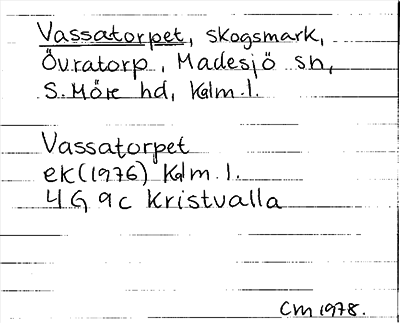 Vassatorpet, skogsmark,
Övratorp, Madesjö sn,
S. Möre hd, Kalm. l.
Vassatorpet
ek (1976) Kalm. l.
4 G 9 c Kristvalla
CM 1978.